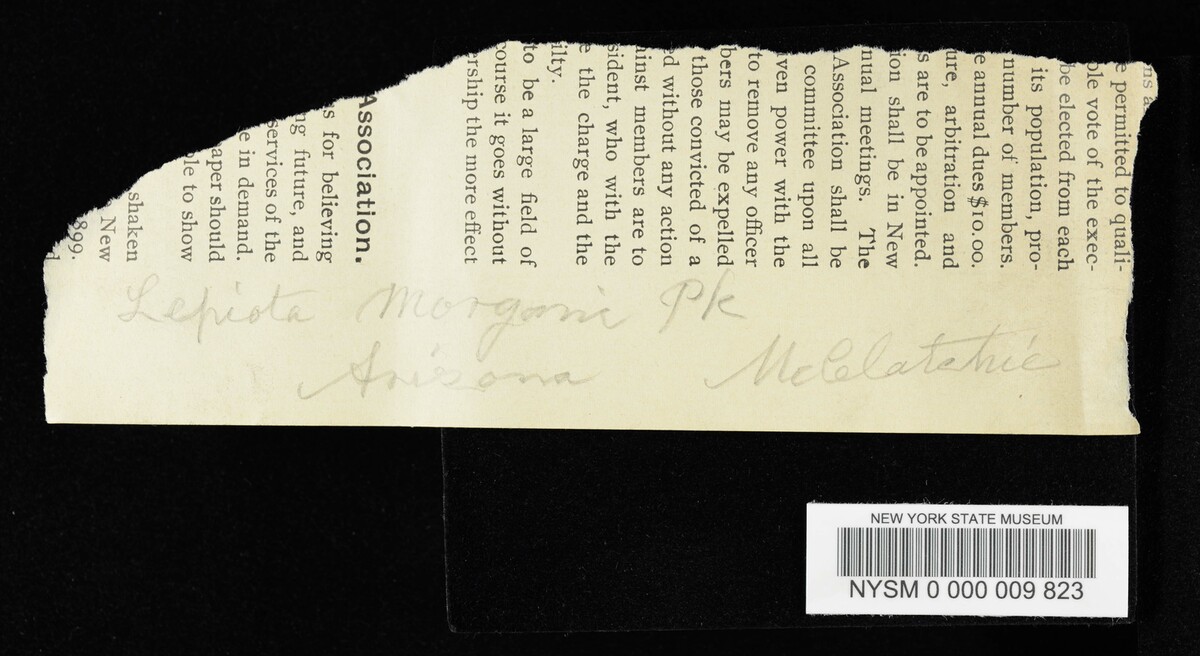 e permitted to quali-
ple vote of the exec-
be elected from each
its population, pro-
number of members.
e annual dues $10.00.
ure, arbitration and
s are to be appointed.
ion shall be in New
nual meetings. The
Association shall be
committee upon all
ven power with the
to remove any officer
bers may be expelled
those convicted of a
ed without any action
ainst members are to
sident, who with the
e the charge and the
ilty.
to be a large field of
course it goes without
ership the more effect
Association.
s for believing
ng future, and
services of the
e in demand.
aper should
ple to show
shaken
New
899.
Lepiota Morgani Pk
Arizona McClatchie
NEW YORK STATE MUSEUM
NYSM 0 000 009 823